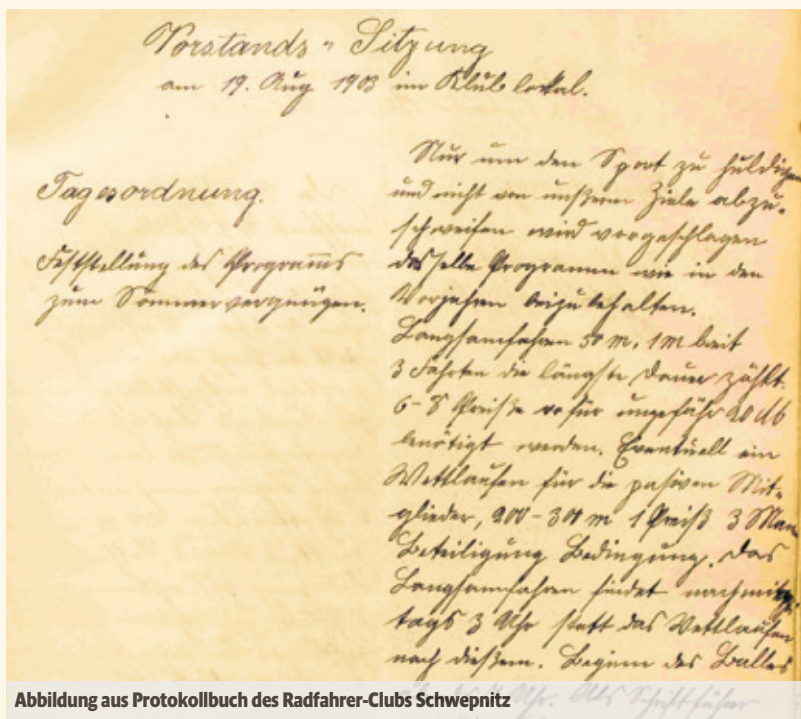 Vorstands„ Sitzung
am 19. Aug 1903 im Klublokal.
Tagesordnung.
Feststellung des Programms
zum Sommervergnügen.
Nur um den Sport zu huldigen
und nicht von unserm Ziele abzu-
schweifen wird vorgeschlagen
dasselbe Programm wie in den
Vorjahren beizubehalten.
Langsamfahren 50 m, 1 m breit
3 Fahrten die längste Dauer zählt.
6-8 Preiße wofür ungefähr 20 M
benötigt werden. Eventuell ein
Wettlaufen für die pasiven Mit-
glieder, 200-300 m 1 Preiß 3 Man
Beteiligung Bedingung. Das
Langsamfahren findet nachmit-
tags 3 Uhr statt das Wettlaufen
nach dießem. Beginn des Balles
Uhr. Als Schriftführer
Abbildung aus Protokollbuch des Radfahrer-Clubs Schwepnitz